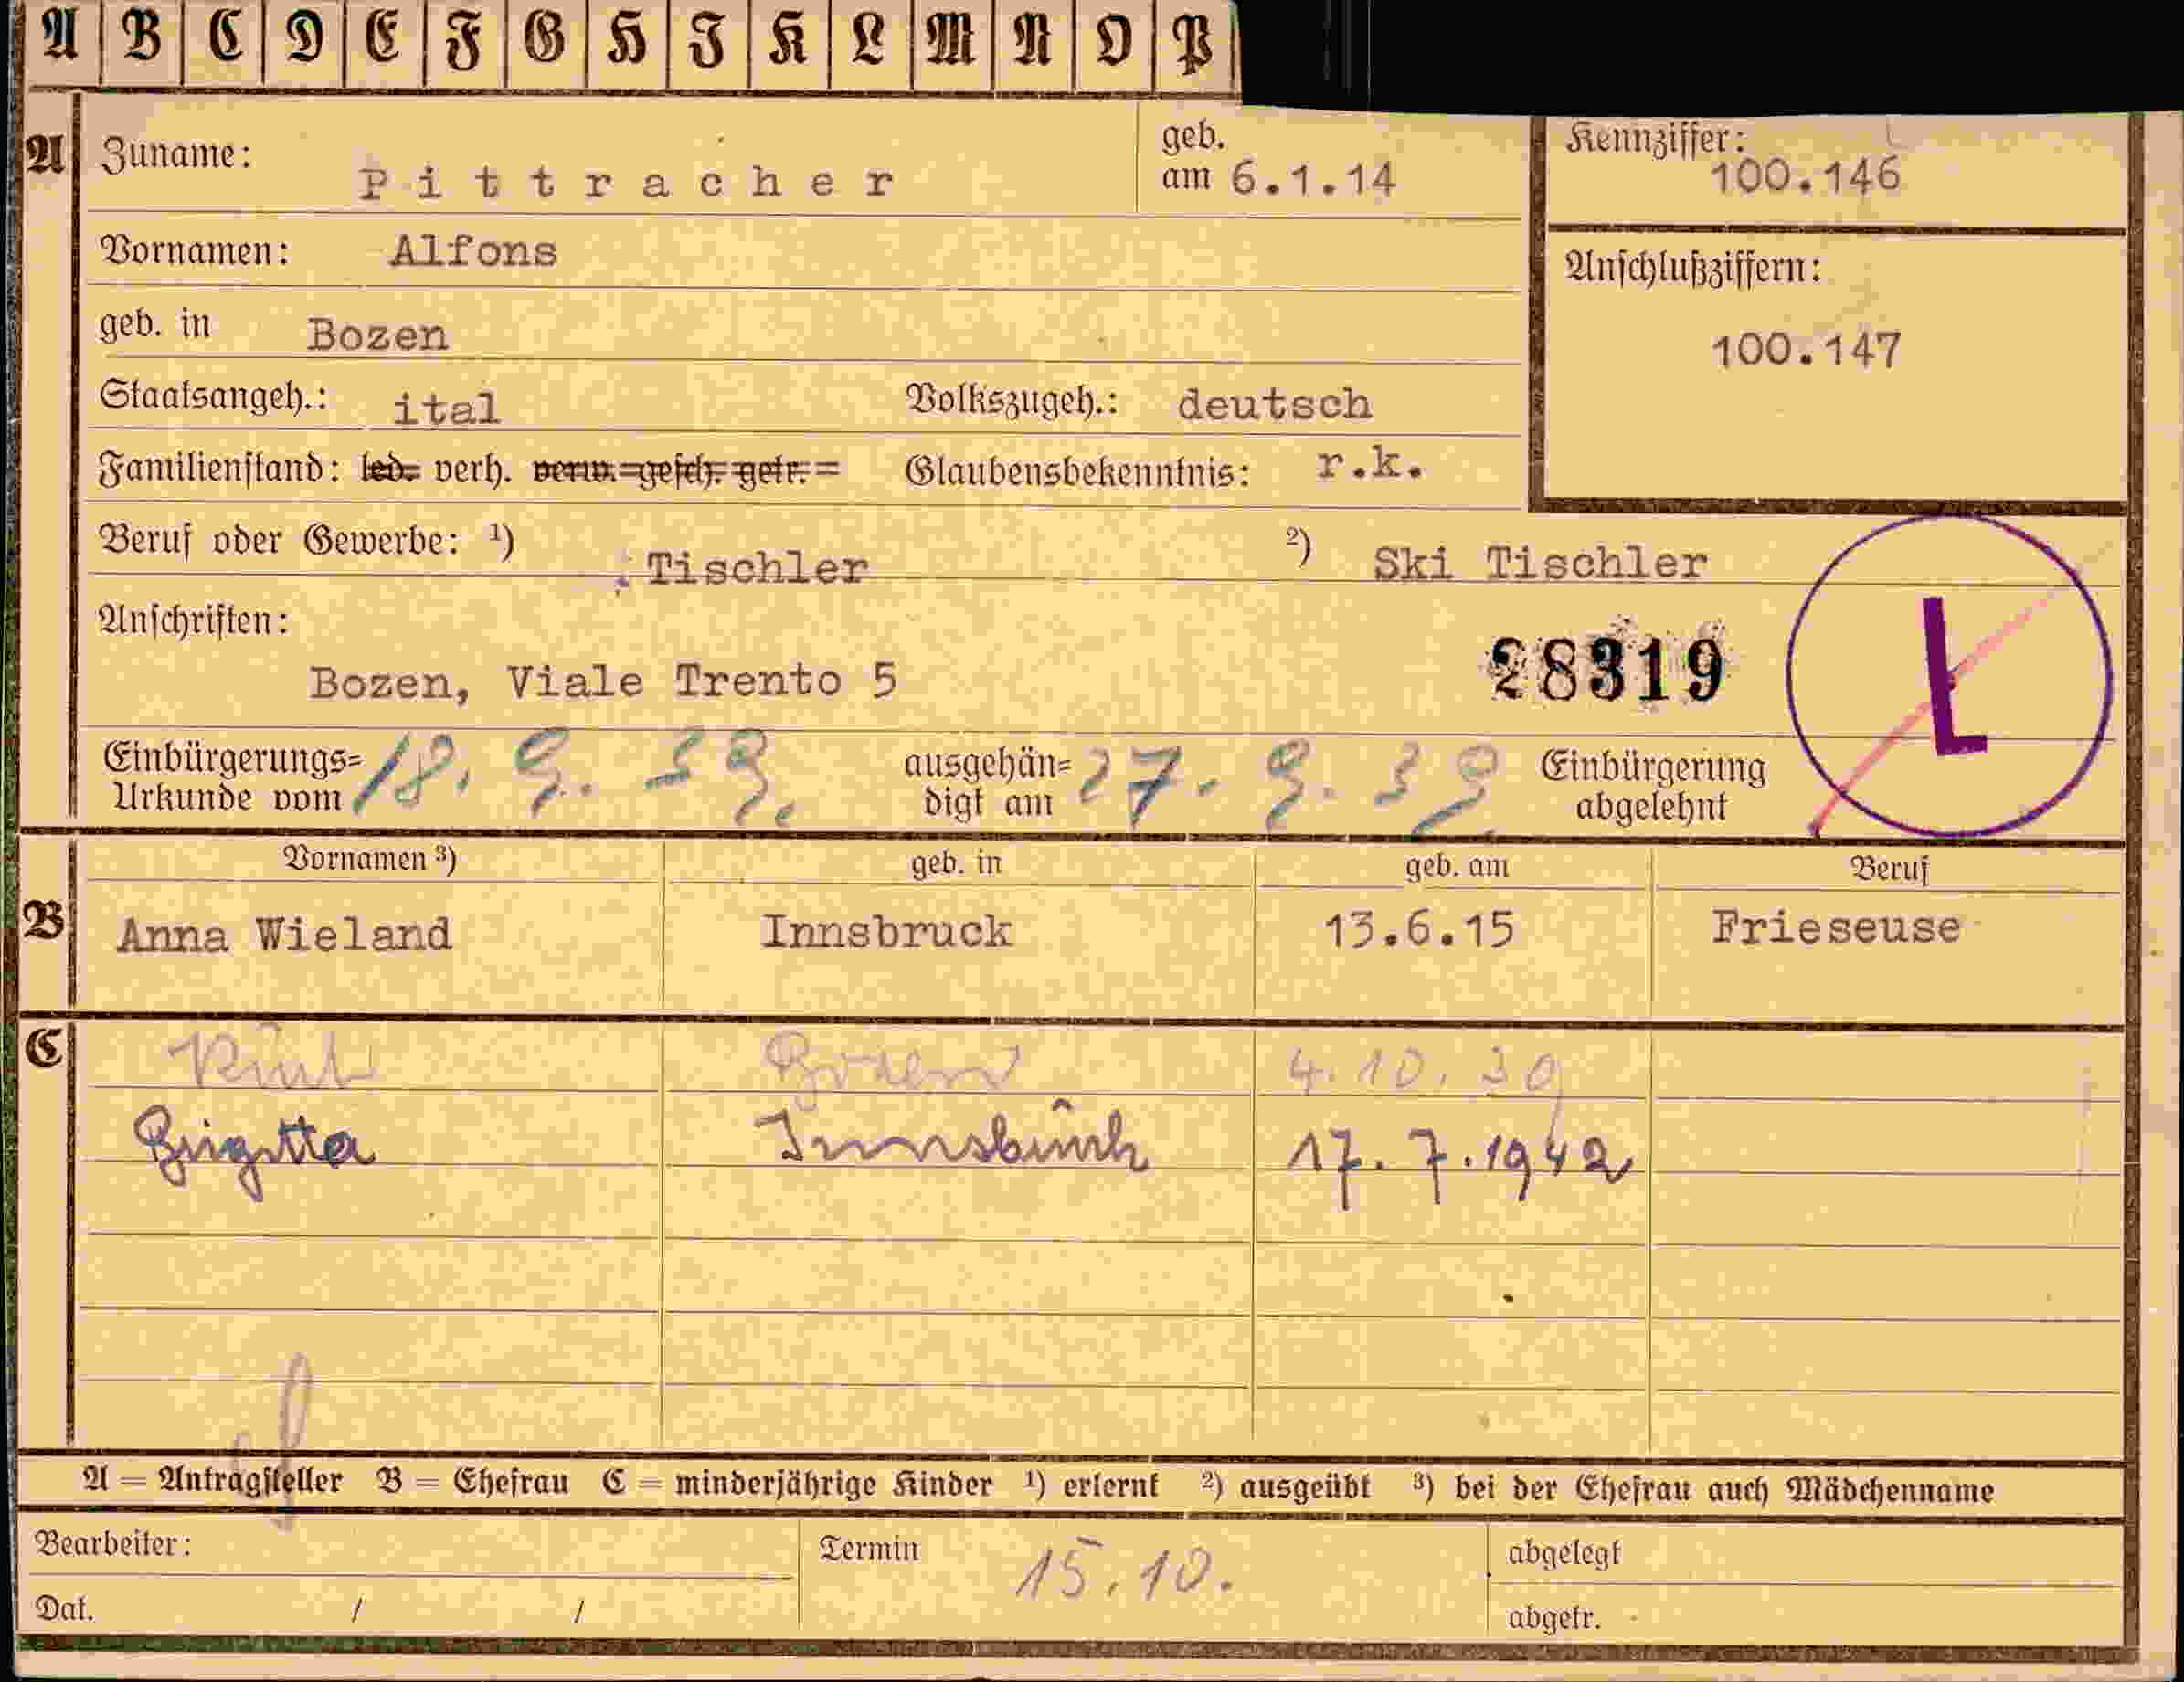 A B C D E F G H I K L M N O P
A Zuname: Pittracher geb. am 6.1.14 Kennziffer: 100.146
Vornamen: Alfons Anschlußziffern:
geb. in Bozen 100.147
Staatsangeh.: ital Volkszugeh.: deutsch
Familienstand: led. verh. verw. gesch. getr. Glaubensbekenntnis: r.k.
Beruf oder Gewerbe: ¹) Tischler ²) Ski Tischler
Anschriften:
Bozen, Viale Trento 5 28319 L
Einbürgerungs= Urkunde vom 18. 9. 39. ausgehän= digt am 27. 9. 39 Einbürgerung abgelehnt
Vornamen ³) geb. in geb. am Beruf
B Anna Wieland Innsbruck 13.6.15 Frieseuse
C Bozen 4. 10. 39
Brigitta Innsbruck 17. 7. 1942
A = Antragsteller B = Ehefrau C = minderjährige Kinder ¹) erlernt ²) ausgeübt ³) bei der Ehefrau auch Mädchenname
Bearbeiter: Termin 15. 10. abgelegt
Dat. / / abgetr.